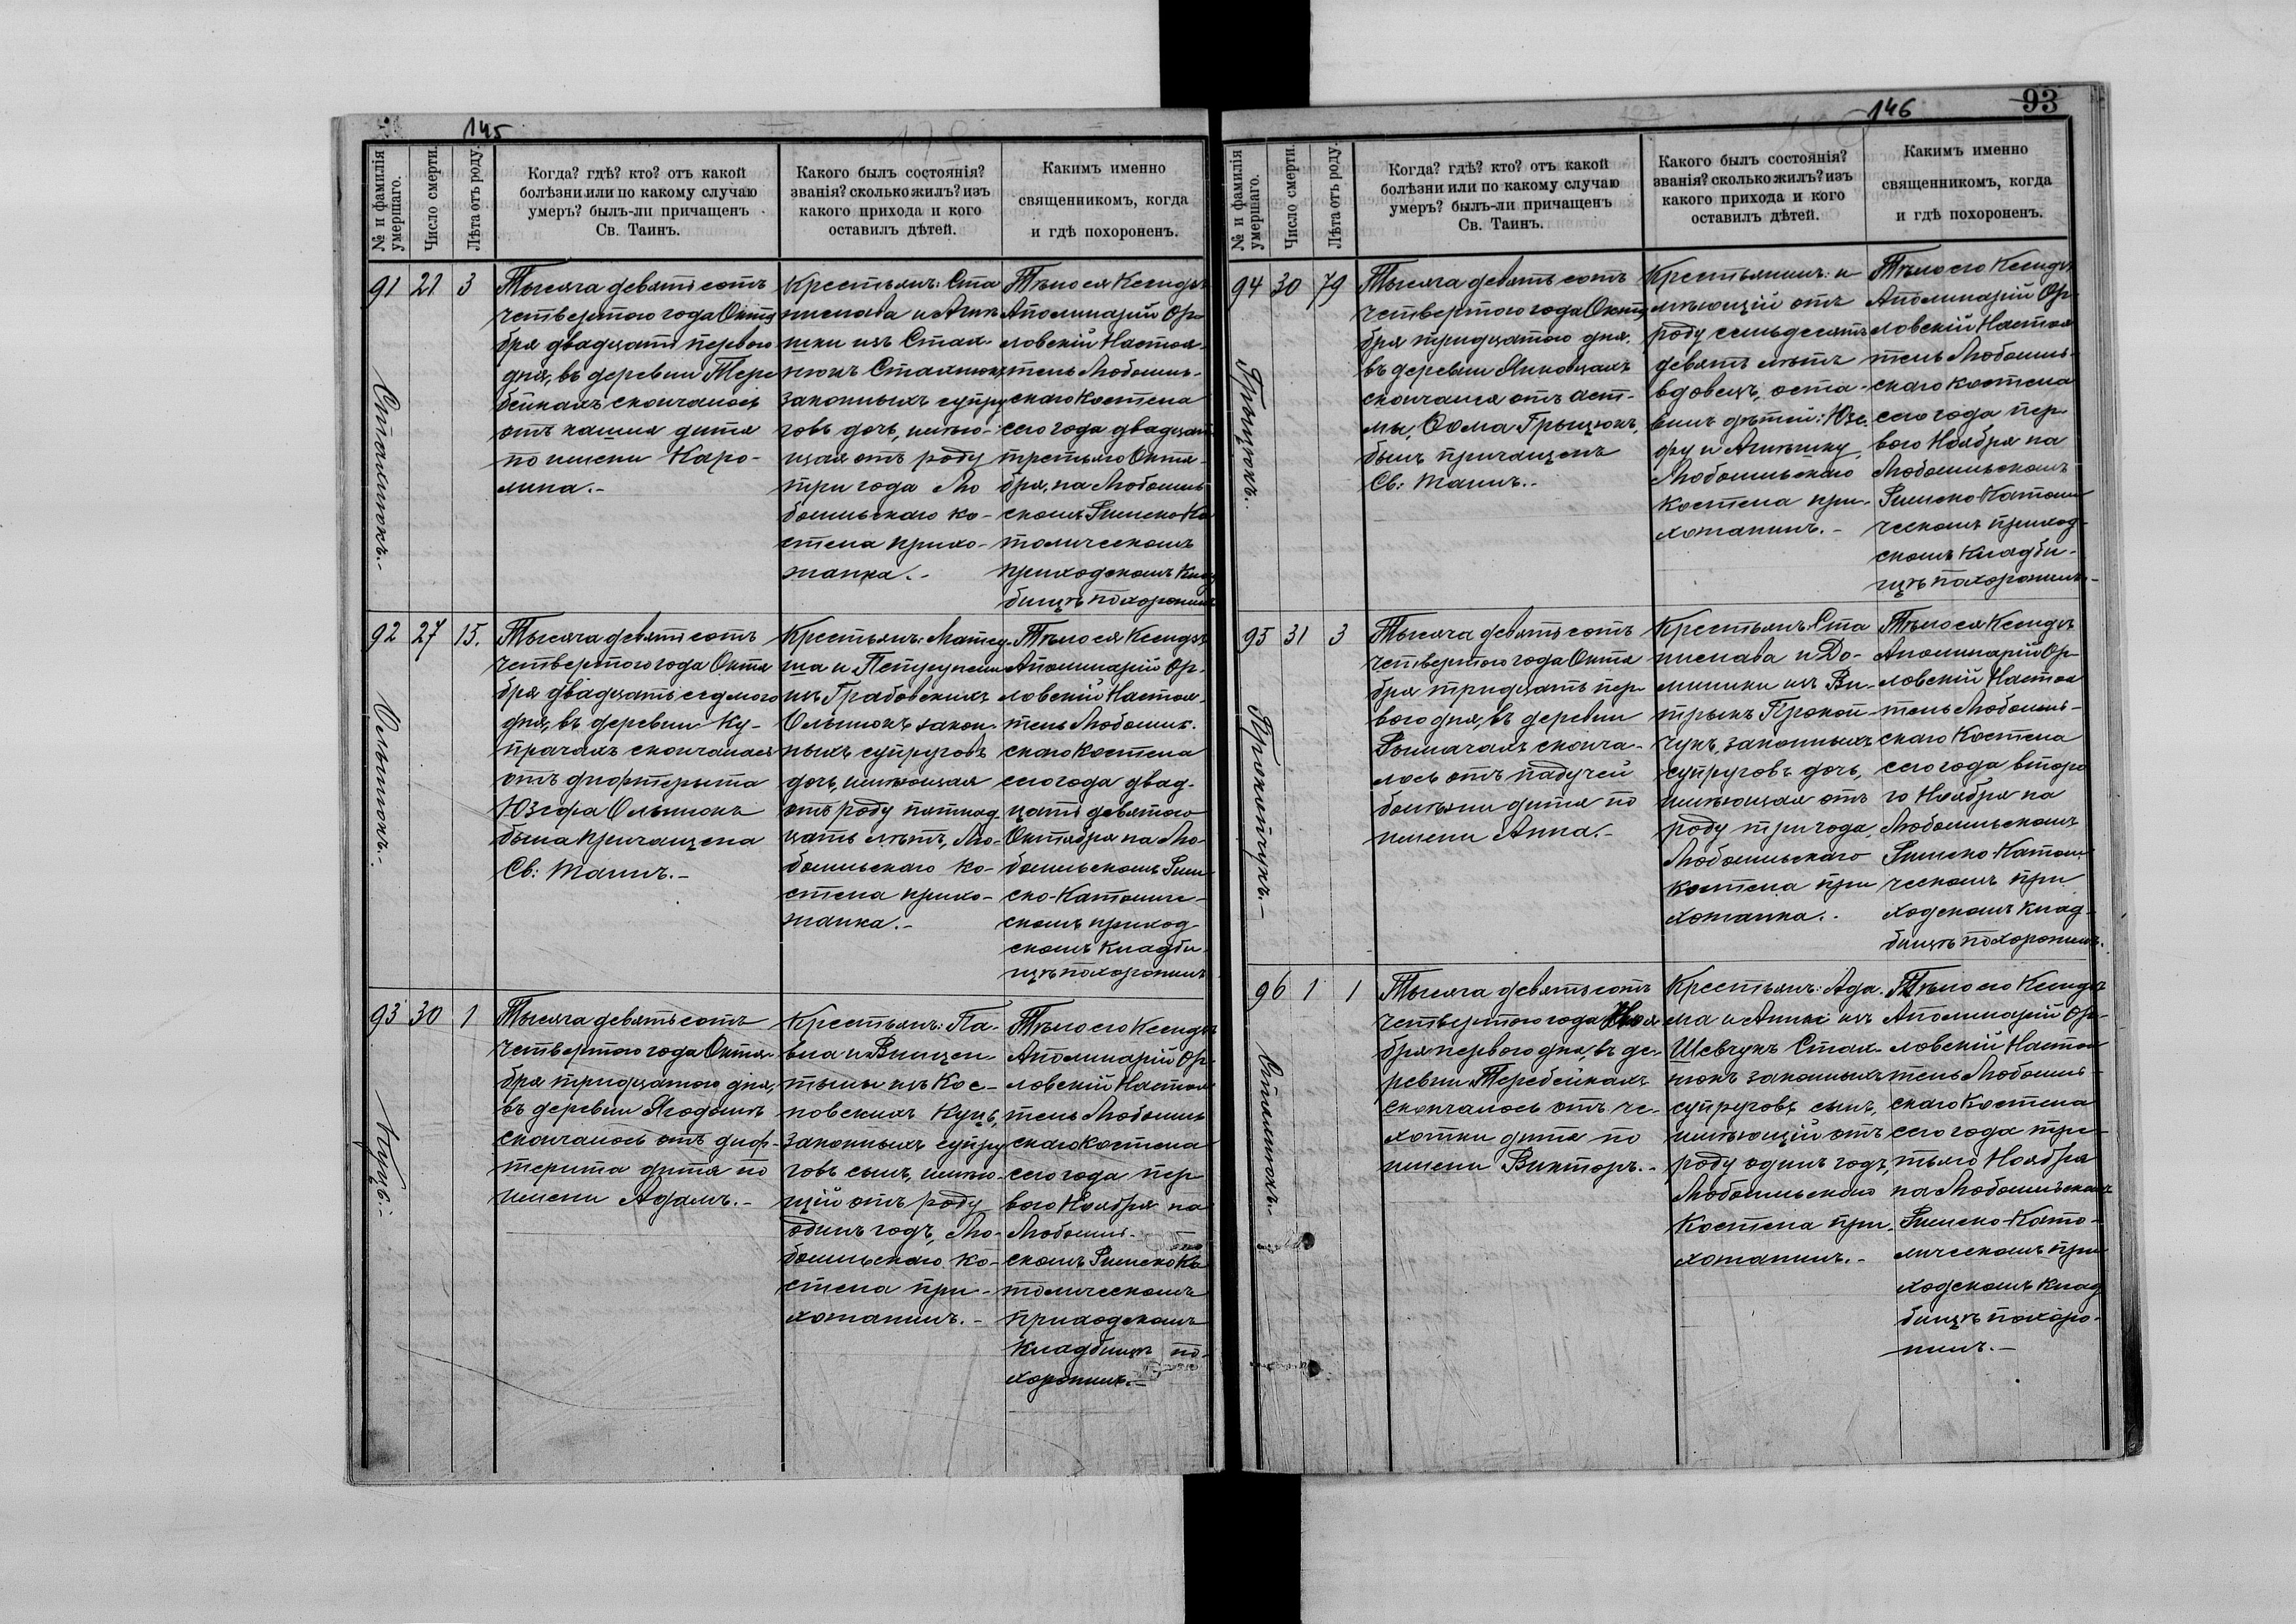 145
№ и фамилія умершаго.
Число смерти.
Лѣта отъ роду.
Когда? гдѣ? кто? отъ какой
болѣзни или по какому случаю
умеръ? былъ-ли причащенъ
Св. Таинъ.
Какого былъ состоянія?
званія? сколько жилъ? изъ
какого прихода и кого
оставилъ дѣтей.
Какимъ именно
священникомъ, когда
и гдѣ похороненъ.
91
21
3
Стахнюкъ.-
Тысяча девятьсотъ
четвертого года Октя
бря двадцать перваго
дня, въ деревни Тере
бейкахъ скончалось
отъ кашля дитя
по имени Каро-
лина.-
Крестьянъ: Ста
нислава и Агнѣ
шки изъ Стах-
нюкъ Стахнюкъ,
законныхъ супру
говъ дочь, имѣю-
щая отъ роду
три года Лю
бомльскаго ко-
стела прихо-
жанка.-
Тѣло ея Ксендзъ
Аполинарій Ор-
ловскій Настоя-
тель Любомль-
скаго Костела
сего года двадцать
третьяго Октя-
бря, на Любомль
скомъ Римско Ка
толическомъ
приходскомъ клад
бищѣ похоронилъ
92
27
15.
Ольшнюкъ.-
Тысяча девятьсотъ
четвертого года Октя
бря двадцать седмого
дня, въ деревни Ку-
прачахъ скончалась
отъ дифтерыта
Юзефа Ольшнюкъ
была причащена
Св: Таинъ.-
Крестьянъ: Матеу
ша и Петрунели
изъ Грабовскихъ
Ольшнюкъ закон-
ныхъ супруговъ
дочь, имѣющая
отъ роду пятнад
цать лѣтъ, Лю-
бомльскаго ко-
стела прихо-
жанка.-
Тѣло ея Ксендзъ
Аполинарій Ор-
ловскій Настоя-
тель Любомль-
скаго Костела
сего года двад-
цать девятого
Октября на Лю-
бомльскомъ Рим-
ско-Католиче-
скомъ приход
скомъ кладби-
щѣ похоронилъ
93
30
1
Куць.-
Тысяча девятьсотъ
четвертого года Октя-
бря тридцатого дня,
въ деревни Ягодинѣ
скончалось отъ диф-
терита дитя по
имени Адамъ.-
Крестьянъ: Па-
вла и Винцен-
тыны изъ Кос-
новскихъ Куць,
законныхъ супру
говъ сынъ, имѣю-
щій отъ роду
одинъ годъ, Лю-
бомльскаго ко-
стела при-
хожанинъ.-
Тѣло его Ксендзъ
Аполинарій Ор-
ловскій Настоя
тель Любомль
скаго костела
сего года пер
вого Ноября на
Любомль-
скомъ Римско Ка
толическомъ
приходскомъ
кладбищѣ по-
хоронилъ.-
146
93
№ и фамилія умершаго.
Число смерти.
Лѣта отъ роду.
Когда? гдѣ? кто? отъ какой
болѣзни или по какому случаю
умеръ? былъ-ли причащенъ
Св. Таинъ.
Какого былъ состоянія?
званія? сколько жилъ? изъ
какого прихода и кого
оставилъ дѣтей.
Какимъ именно
священникомъ, когда
и гдѣ похороненъ.
94
30
79
Грыцюкъ.
Тысяча девятьсотъ
четвертого года Октя
бря тридцатого дня,
въ деревни
скончался отъ аст-
мы, Ѳома Грыцюкъ,
былъ причащенъ
Св: Таинъ.-
Крестьянинъ: и-
мѣющій отъ
роду семьдесятъ
девять лѣтъ
вдовецъ, оста-
вилъ дѣтей: Юзе-
фу и Агнѣшку,
Любомльскаго
костела при-
хожанинъ.-
Тѣло его Ксендзъ
Аполинарій Ор-
ловскій Настоя
тель Любомль-
скаго костела
сего года пер
вого Ноября на
Любомльскомъ
Римско Католи
ческомъ приход-
скомъ кладби-
щѣ похоронилъ-
95
31
3
Прокопчукъ.-
Тысяча девятьсотъ
четвертого года Октя
бря тридцать пер
вого дня, въ деревни
Рымачахъ сконча-
лось отъ падучей
болѣзни дитя по
имени Анна.-
Крестьянъ: Ста
нислава и До-
миники изъ Ви-
трыкъ Прокоп-
чукъ, законныхъ
супруговъ дочь,
имѣющая отъ
роду три года,
Любомльскаго
костела при
хожанка.-
Тѣло ея Ксендзъ
Аполинарій Ор-
ловскій Настоя
тель Любомль-
скаго Костела
сего года второ
го Ноября на
Любомльскомъ
Римско-Католи
ческомъ при
ходскомъ клад-
бищѣ похоронилъ.
96
1
1
Стахнюкъ.-
Тысяча девятьсотъ
четвертого года Ноя
бря первого дня, въ де-
ревни Теребейкахъ
скончалось отъ че-
хотки дитя по
имени Викторъ.-
Крестьянъ: Ада-
ма и Анны изъ
Шевчукъ Стах-
нюкъ законныхъ
супруговъ сынъ,
имѣющій отъ
роду одинъ годъ,
Любомльскаго
Костела при-
хожанинъ.-
Тѣло его Ксендзъ
Аполинарій Ор-
ловскій Настоя
тель Любомль-
скаго Костела
сего года тре-
тьяго Ноября
на Любомльскомъ
Римско-Като-
лическомъ при
ходскомъ клад
бищѣ похоро-
нилъ.-